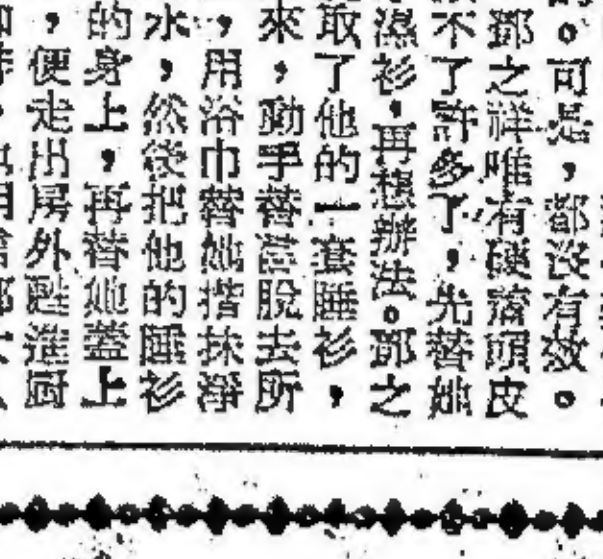 的。可是，都沒有效。
鄧之祥唯有硬着頭皮
不了許多了，先替她
濕衫，再想辦法。鄧之
取了他的一套睡衫，
來，動手替她脫去所
，用浴巾替她揩抹淨
水，然後把他的睡衫
的身上，再替她蓋上
，便走出房外趕進厨